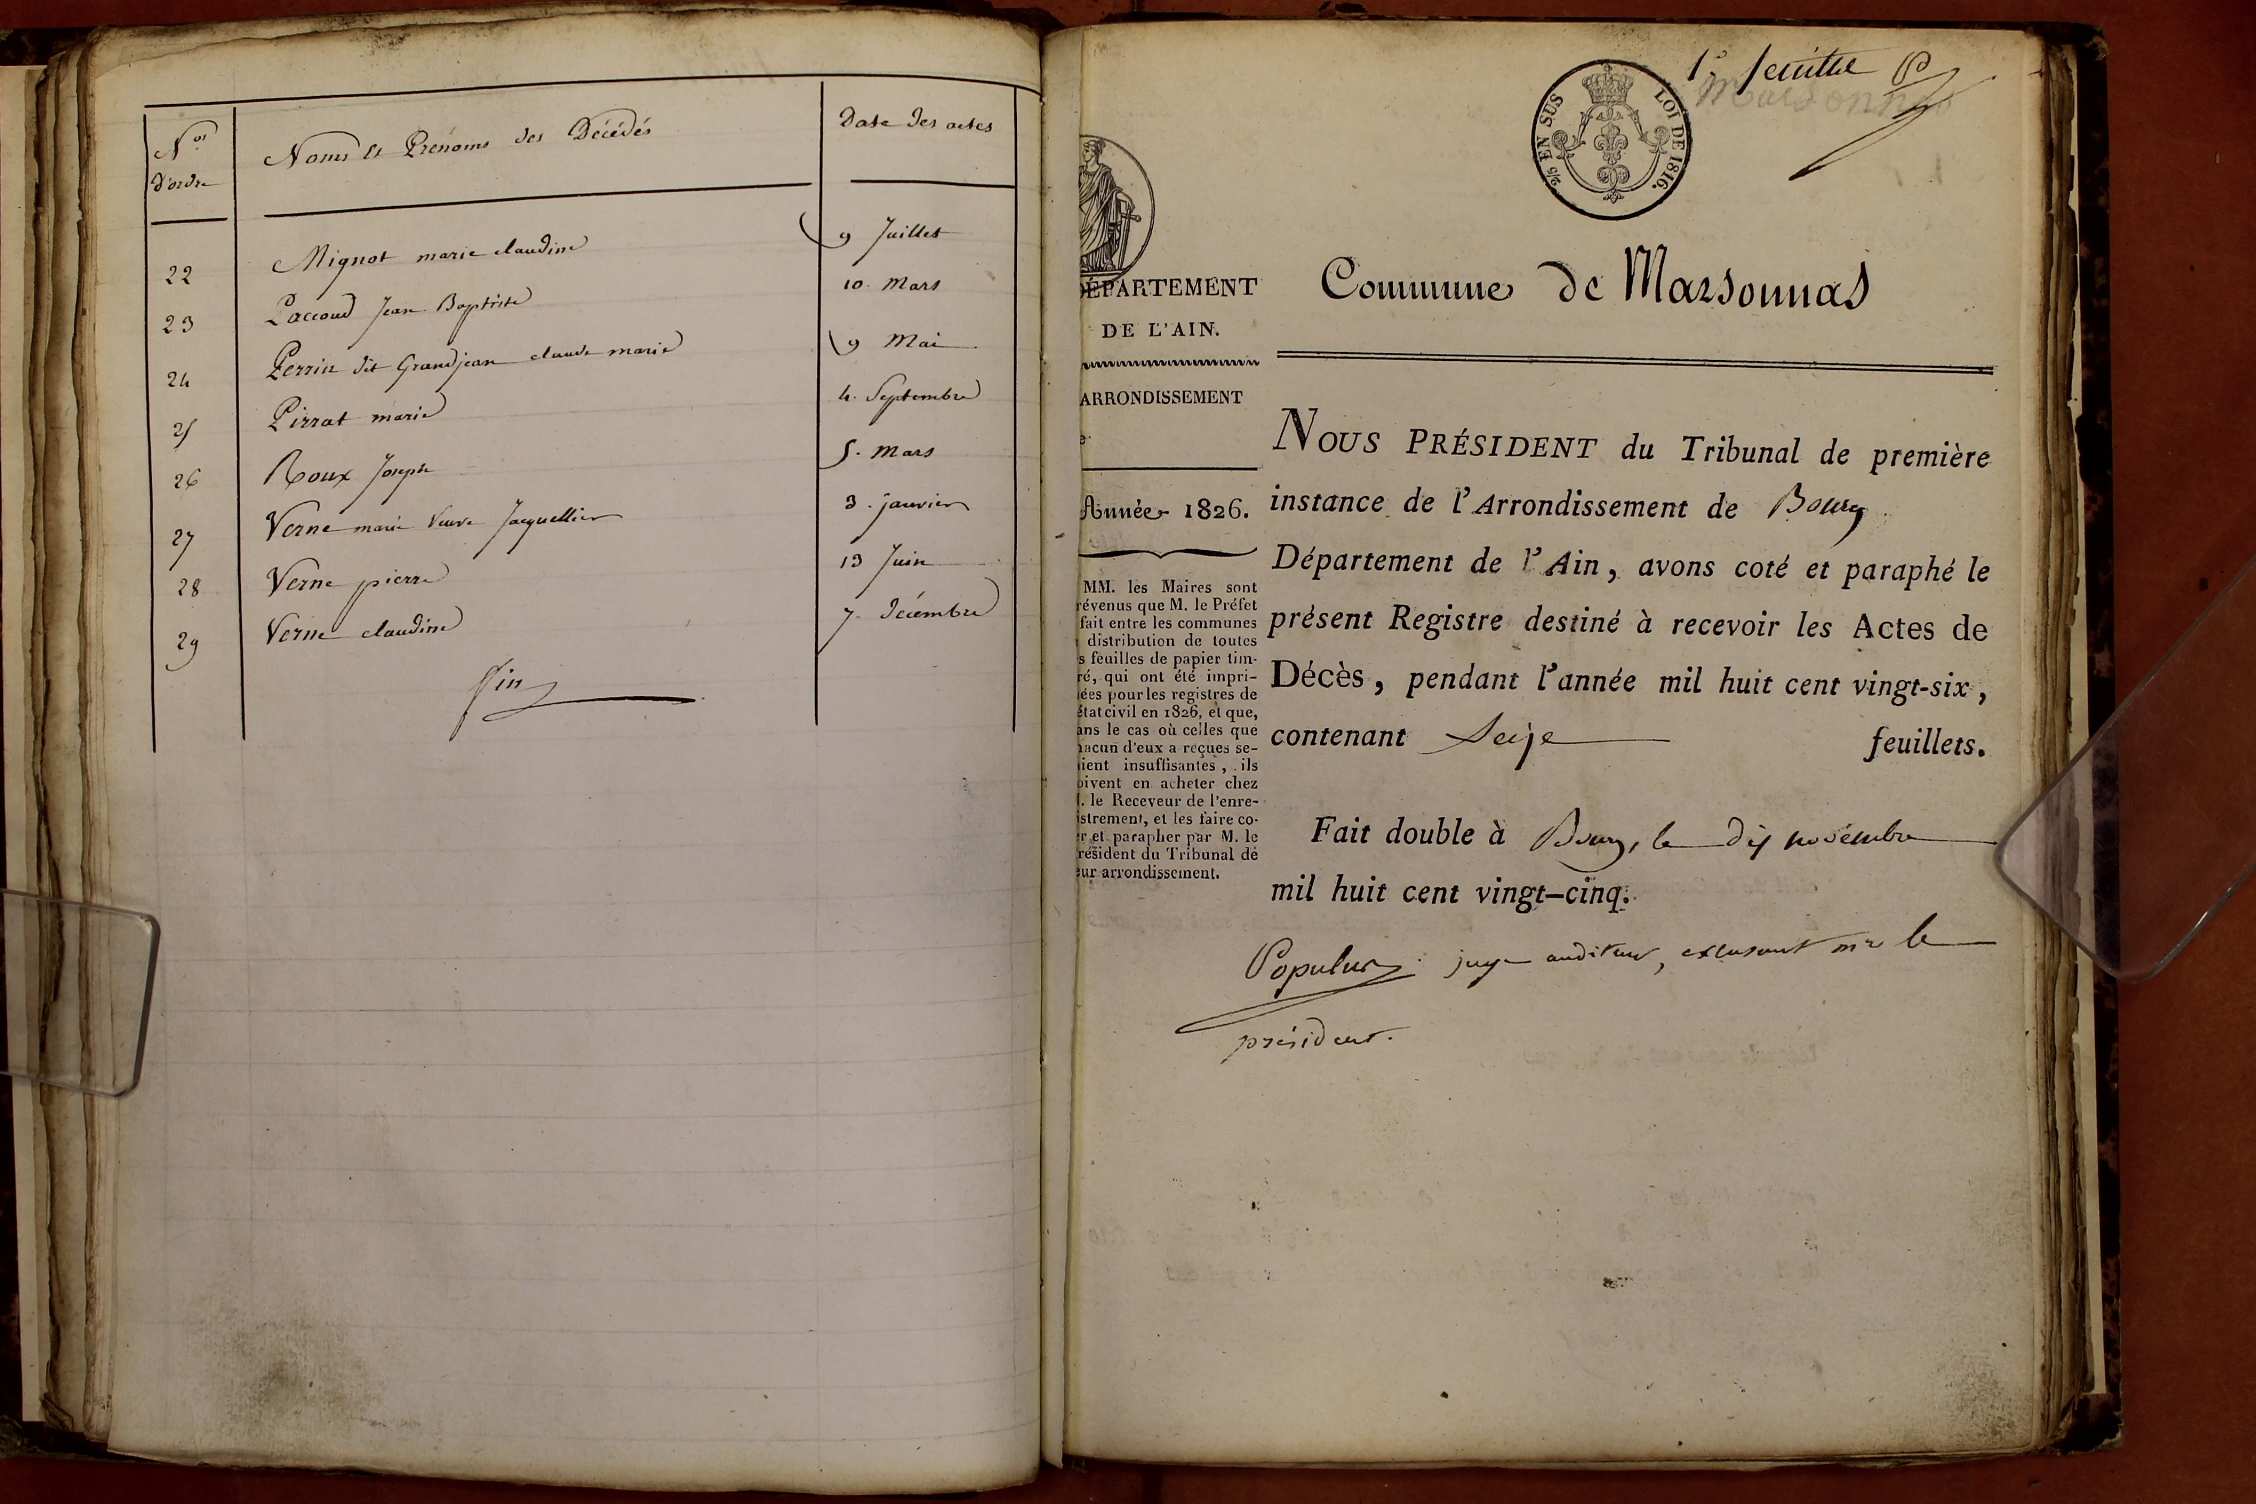 Nos d'ordre
Noms et Prénoms des Décédés
Date des actes
22 Mignot marie claudine 9 Juillet
23 Paccoud Jean Baptiste 10. Mars
24 Perrin dit Grandjean claude marie 9 Mai
25 Pirrat marie 4. Septembre
26 Roux Joseph 5. Mars
27 Verne marie Veuve Jacquellier 3. janvier
28 Verne pierre 13 Juin
29 Verne claudine 7. décembre
fin
1er feuillet P
Marsonnas
2/5 EN SUS LOI DE 1816.
DÉPARTEMENT
DE L'AIN.
ARRONDISSEMENT
Année 1826.
MM. les Maires sont
révenus que M. le Préfet
fait entre les communes
distribution de toutes
s feuilles de papier tim-
ré, qui ont été impri-
ées pour les registres de
état civil en 1826, et que,
ans le cas où celles que
hacun d'eux a reçues se-
ient insuffisantes, ils
oivent en acheter chez
. le Receveur de l'enre-
istrement, et les faire co-
er et parapher par M. le
résident du Tribunal de
eur arrondissement.
Commune de Marsonnas
NOUS PRÉSIDENT du Tribunal de première
instance de l'Arrondissement de Bourg
Département de l'Ain, avons coté et paraphé le
présent Registre destiné à recevoir les Actes de
Décès, pendant l'année mil huit cent vingt-six,
contenant Seize feuillets.
Fait double à Bourg, le dix novembre
mil huit cent vingt-cinq.
Populus juge auditeur, excusant mr le
président.